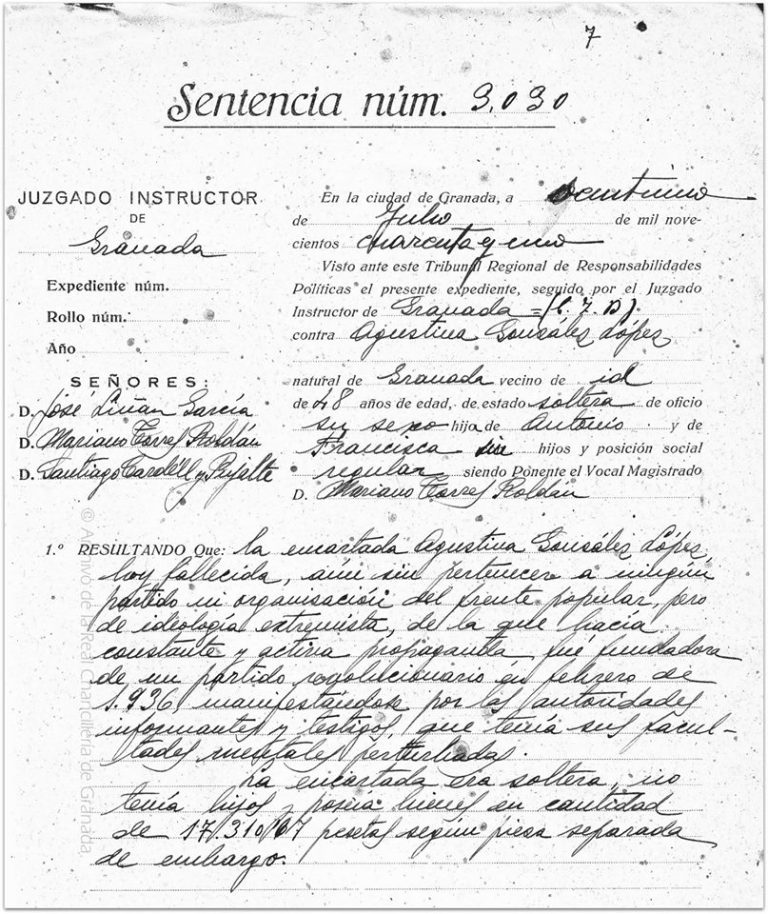 7
Sentencia núm. 3.030
JUZGADO INSTRUCTOR
DE
Granada
Expediente núm.
Rollo núm.
Año
SEÑORES:
D. José Liñan García
D. Mariano Torres Roldán
D. Santiago Cardell y Pujalte
En la ciudad de Granada, a veintiuno
de Julio de mil nove-
cientos cuarenta y uno
Visto ante este Tribunal Regional de Responsabilidades
Políticas el presente expediente, seguido por el Juzgado
Instructor de Granada =(C. 7. D).
contra Agustina González López
natural de Granada vecino de id
de 48 años de edad, de estado soltera de oficio
su sexo hija de Antonio y de
Francisca sin hijos y posición social
regular siendo Ponente el Vocal Magistrado
D. Mariano Torres Roldán
1.º RESULTANDO Que: la encartada Agustina González López,
hoy fallecida, aún sin pertenecer a ningún
partido ni organisación del frente popular, pero
de ideología extremista, de la que hacia
constante y activa propaganda, fué fundadora
de un partido revolucionario en febrero de
1.936, manifestándose por las autoridades
informantes y testigos, que tenía sus facul-
tades mentales perturbadas.
La encartada era soltera, no
tenía hijos y poseía bienes en cantidad
de 17/310/67 pesetas según pieza separada
de embargo.
© Archivo de la Real Chancillería de Granada